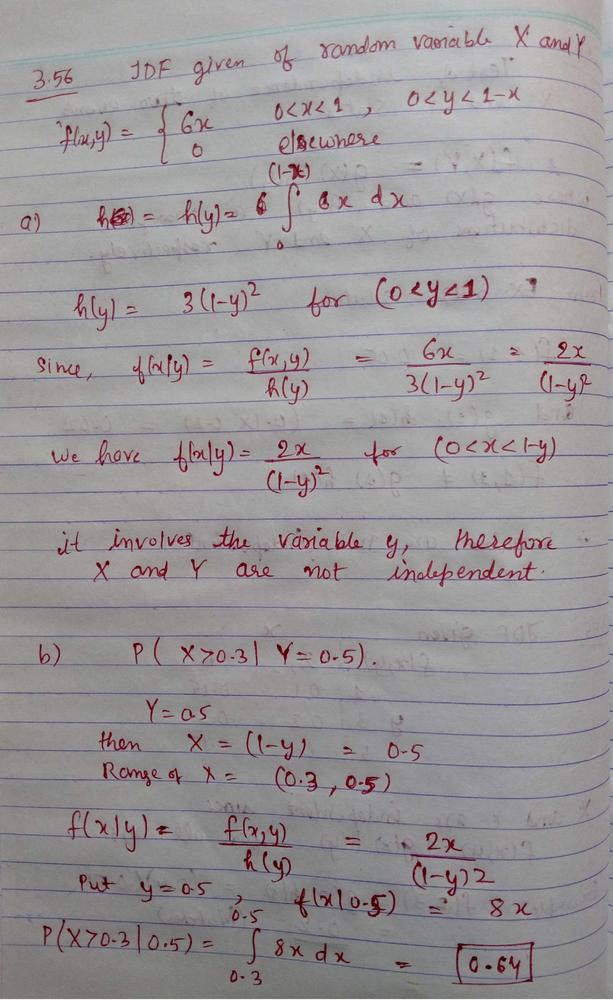 3.56 JDF given of random variable X and Y
f(x,y) = { 6x 0<x<1 , 0<y<1-x
0 elsewhere
a) h(y) = ∫ 0 (1-x) 6x dx
h(y) = 3(1-y)² for (0<y<1)
Since, f(x|y) = f(x,y) / h(y) = 6x / 3(1-y)² = 2x / (1-y)²
we have f(x|y) = 2x / (1-y)² for (0<x<1-y)
it involves the variable y, therefore
X and Y are not independent.
b) P( X>0.3 | Y=0.5).
Y=0.5
then X = (1-y) = 0.5
Range of X = (0.3, 0.5)
f(x|y) = f(x,y) / h(y) = 2x / (1-y)2
Put y=0.5 , f(x|0.5) = 8x
P(X>0.3|0.5) = ∫ 0.3 0.5 8x dx = 0.64